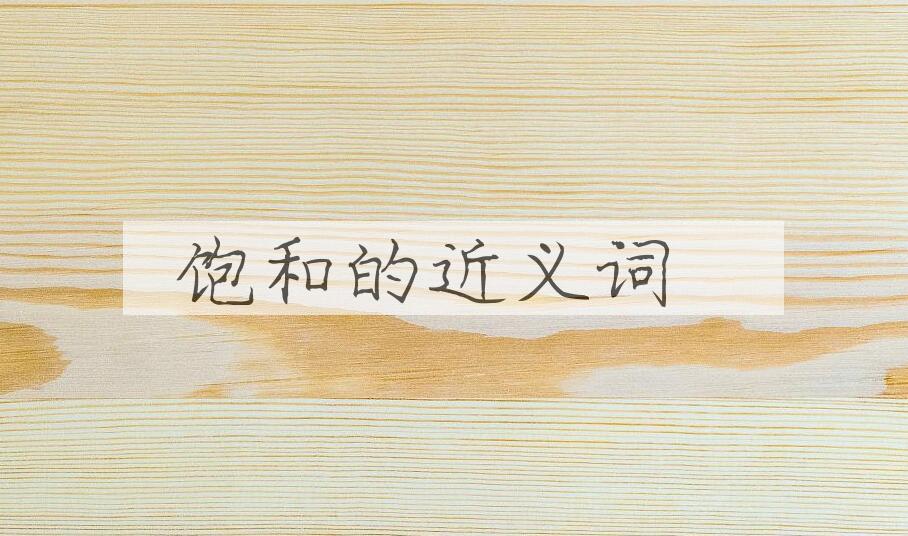 饱和的近义词